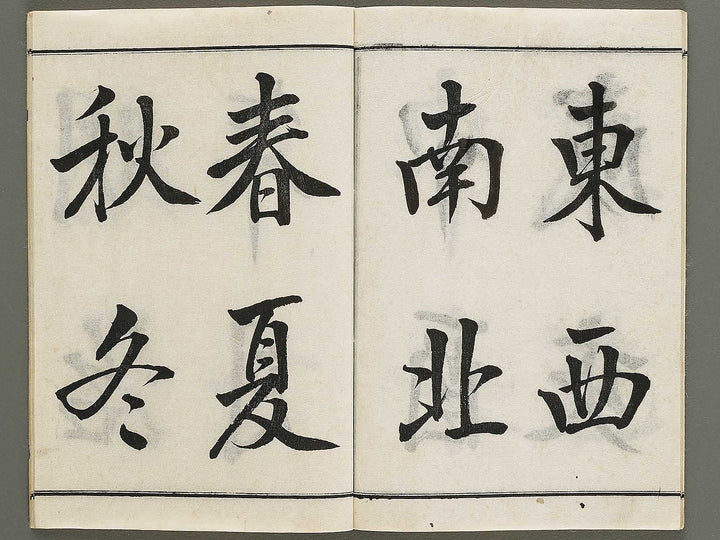 東西
南北
春夏
秋冬